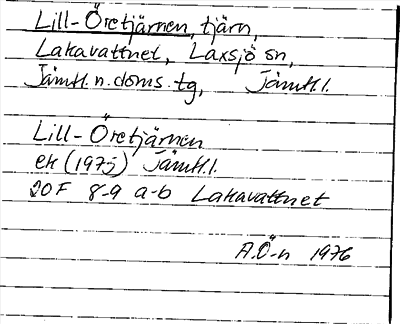 Lill-Öretjärnen, tjärn,
Lakavattnet, Laxsjö sn,
Jämtl.n.doms.tg, Jämtl.l.
Lill-Öretjärnen
ek (1975) Jämtl.l.
20F 8-9 a-b Lakavattnet
A.Ö-n 1976